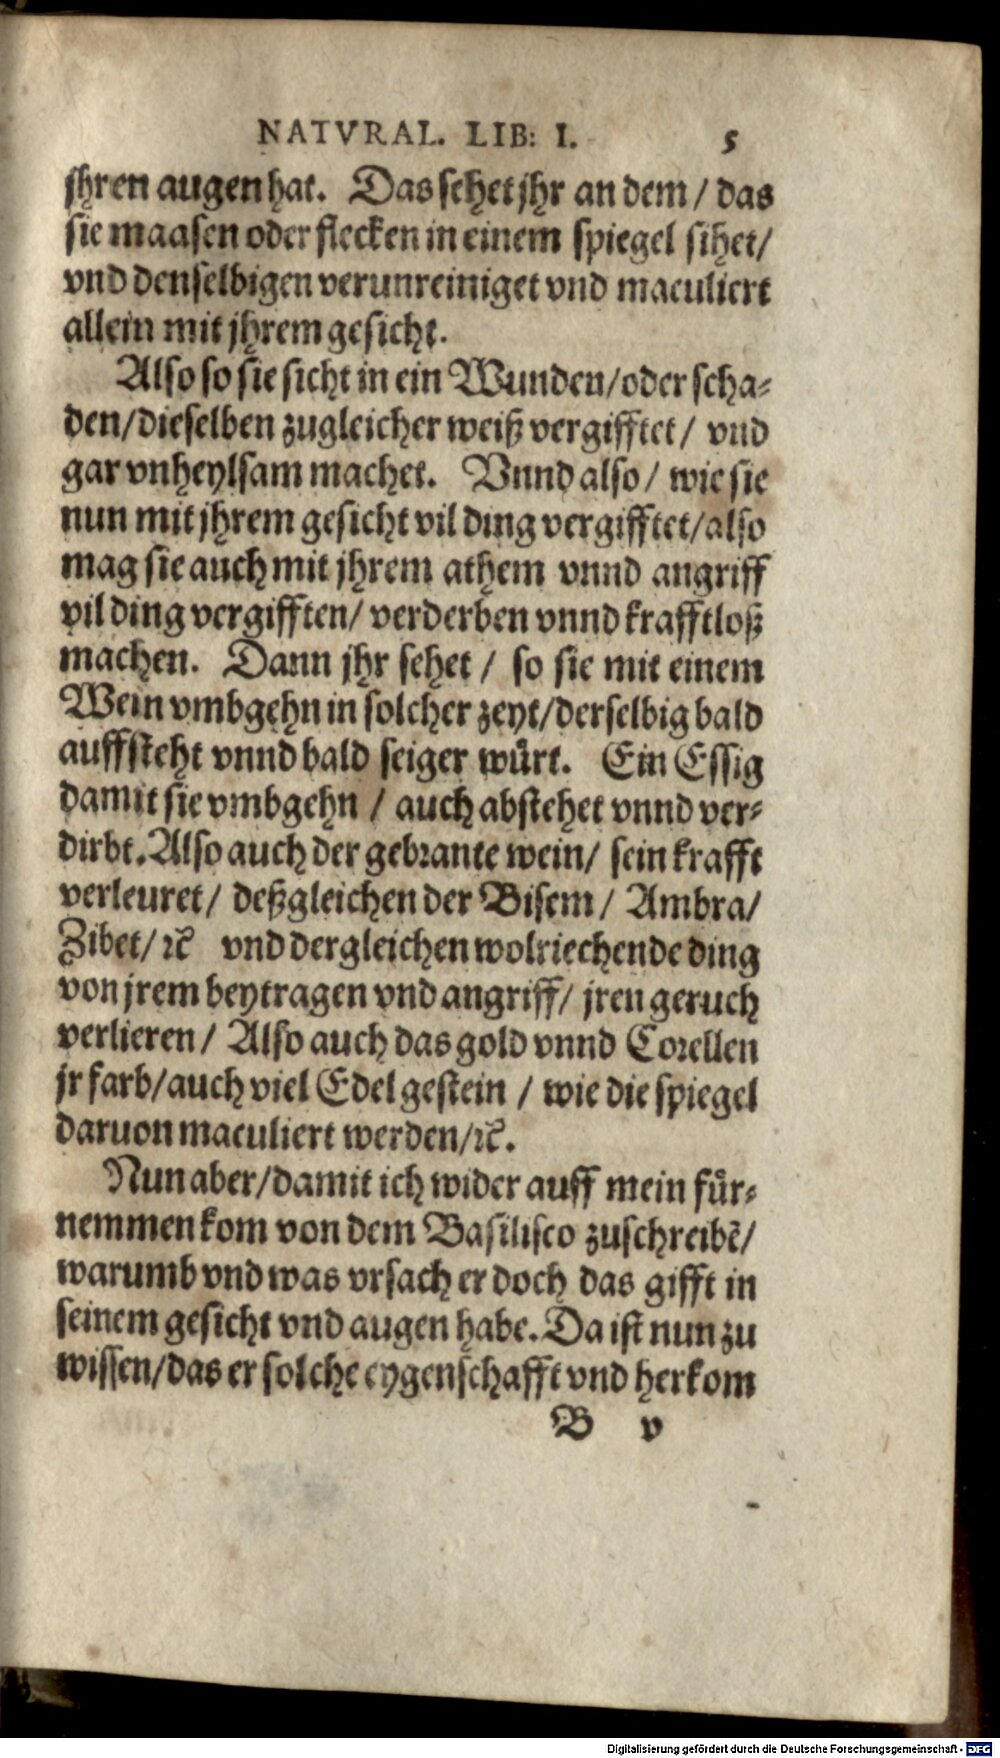 NATVRAL. LIB: I. 5
jhren augen hat. Das sehet jhr an dem / das
sie maasen oder flecken in einem spiegel sihet/
vnd denselbigen verunreiniget vnd maculiert
allein mit jhrem gesicht.
Also so sie sicht in ein Wunden/oder scha⸗
den/dieselben zugleicher weiß vergifftet/ vnd
gar vnheylsam machet. Vnnd also / wie sie
nun mit jhrem gesicht vil ding vergifftet/also
mag sie auch mit jhrem athem vnnd angriff
vil ding vergifften/ verderben vnnd krafftloß
machen. Dann jhr sehet / so sie mit einem
Wein vmbgehn in solcher zeyt/derselbig bald
auffsteht vnnd bald seiger wuͤrt. Ein Essig
damit sie vmbgehn / auch abstehet vnnd ver⸗
dirbt. Also auch der gebrante wein/ sein krafft
verleuret/ deßgleichen der Bisem/ Ambra/
Zibet/ ꝛc̄ vnd dergleichen wolriechende ding
von jrem beytragen vnd angriff/ jren geruch
verlieren/ Also auch das gold vnnd Corellen
jr farb/auch viel Edel gestein / wie die spiegel
daruon maculiert werden/ꝛc̄.
Nun aber/damit ich wider auff mein fuͤr⸗
nemmen kom von dem Basilisco zuschreibē/
warumb vnd was vrsach er doch das gifft in
seinem gesicht vnd augen habe. Da ist nun zu
wissen/das er solche eygenschafft vnd herkom
B v
Digitalisierung gefördert durch die Deutsche Forschungsgemeinschaft - DFG